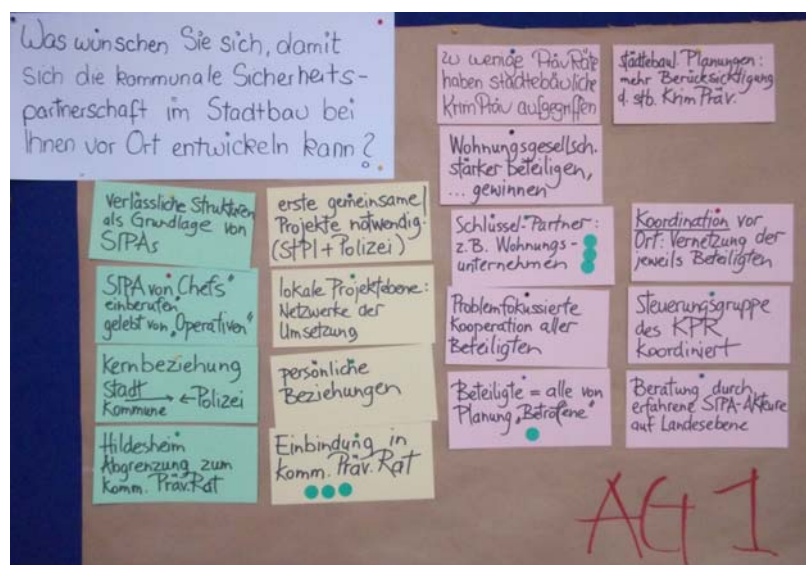 Was wünschen Sie sich, damit
sich die kommunale Sicherheits-
partnerschaft im Stadtbau bei
Ihnen vor Ort entwickeln kann?
verlässliche Strukturen
als Grundlage von
SIPAs
SIPA von „Chefs"
einberufen
gelebt von „Operativen"
Kernbeziehung
Stadt
Kommune → ← Polizei
Hildesheim
Abgrenzung zum
Komm. Präv.Rat
erste gemeinsame
Projekte notwendig.
(StPl + Polizei)
lokale Projektebene:
Netzwerke der
Umsetzung
persönliche
Beziehungen
Einbindung in
Komm. Präv. Rat
zu wenige PrävRäte
haben städtebauliche
KrimPräv aufgegriffen
Wohnungsgesellsch.
stärker beteiligen,
... gewinnen
Schlüssel-Partner:
z.B. Wohnungs-
unternehmen
Problemfokussierte
Kooperation aller
Beteiligten
Beteiligte = alle von
Planung „Betroffene"
städtebaul. Planungen:
mehr Berücksichtigung
d. stb. Krim Präv.
Koordination vor
Ort: Vernetzung der
jeweils Beteiligten
Steuerungsgruppe
des KPR
koordiniert
Beratung durch
erfahrene SIPA-Akteure
auf Landesebene
AG 1